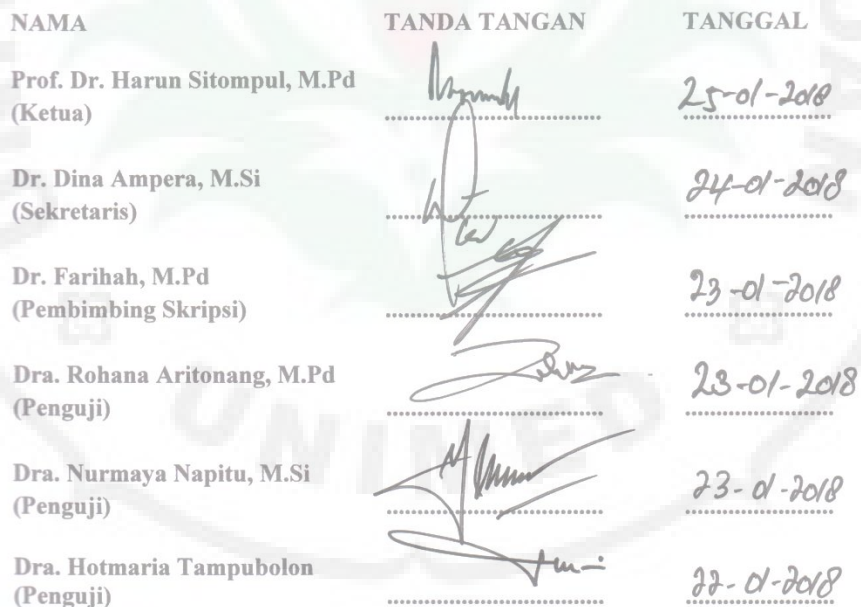 NAMA TANDA TANGAN TANGGAL
Prof. Dr. Harun Sitompul, M.Pd
(Ketua) 25-01-2018
Dr. Dina Ampera, M.Si
(Sekretaris) 24-01-2018
Dr. Farihah, M.Pd
(Pembimbing Skripsi) 23-01-2018
Dra. Rohana Aritonang, M.Pd
(Penguji) 23-01-2018
Dra. Nurmaya Napitu, M.Si
(Penguji) 23-01-2018
Dra. Hotmaria Tampubolon
(Penguji) 22-01-2018
UNIMED